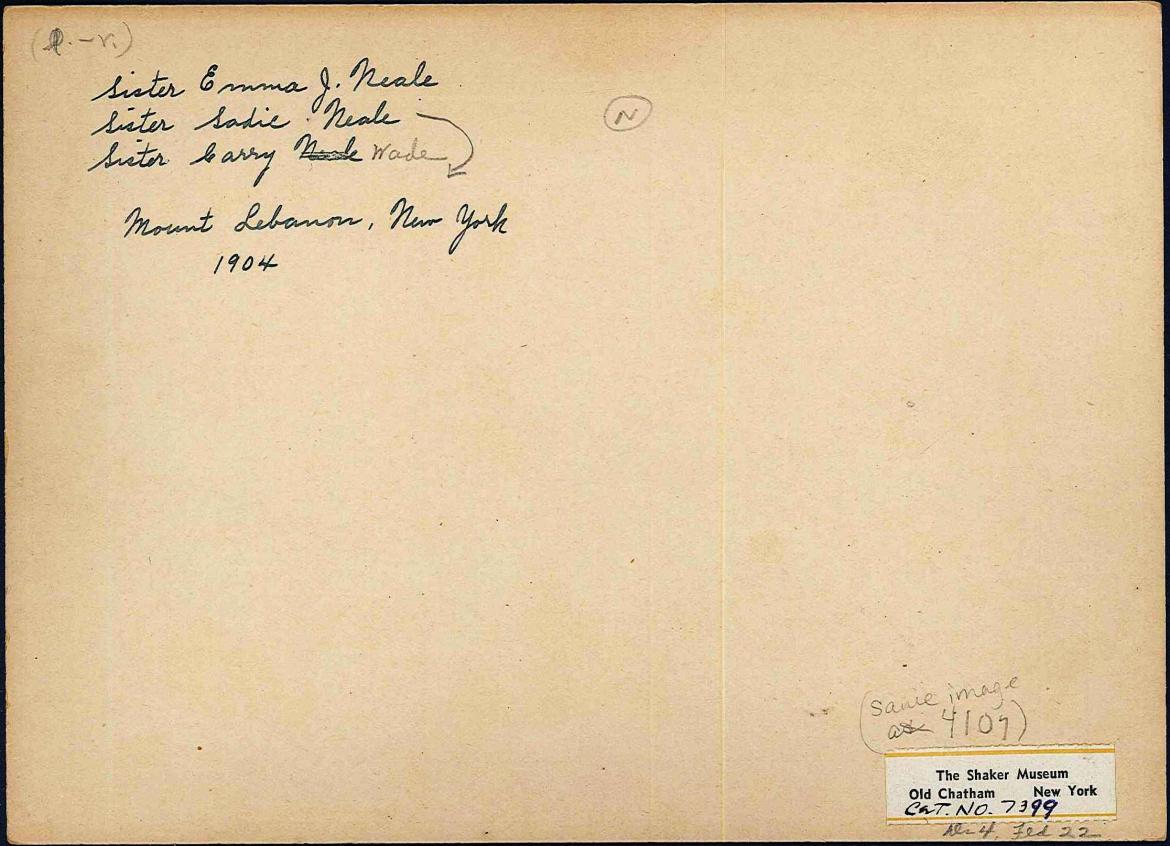 (l.-r.)
Sister Emma J. Neale
Sister Sadie Neale
Sister Carry Neale Wade
N
Mount Lebanon, New York
1904
(Same image
as 4107)
The Shaker Museum
Old Chatham New York
Cat. NO. 7399
4, Fld 22